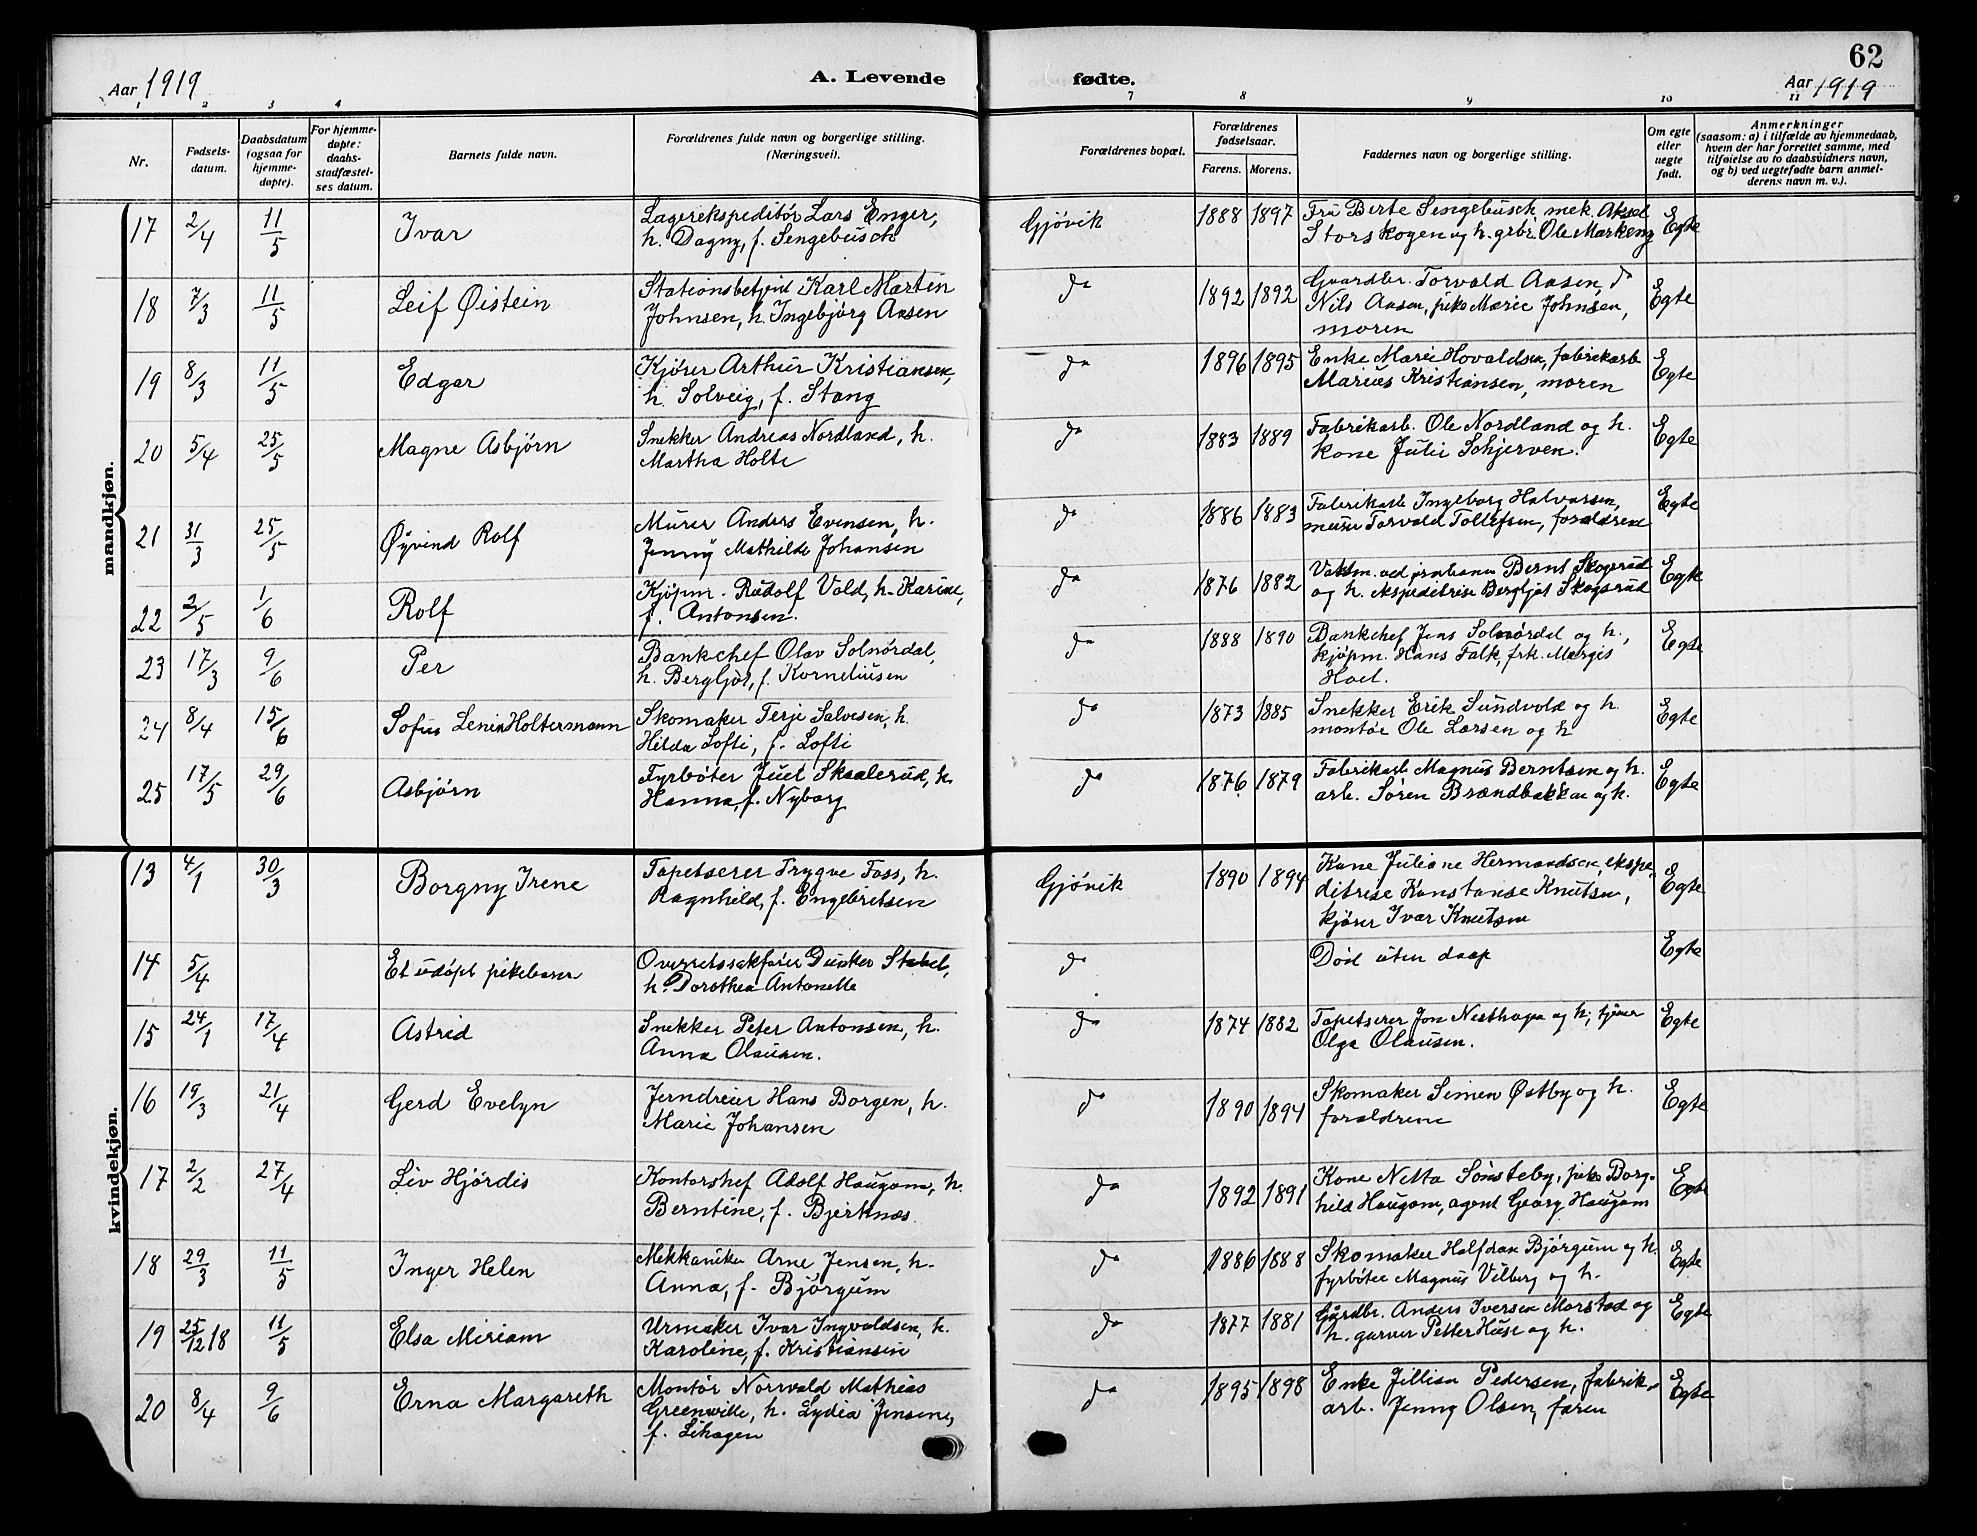 62
Aar 1919
A. Levende
fødte.
Aar 1919
1 2 3 4 7 8 9 10 11
Nr.
Fødsels-
datum.
Daabsdatum
(ogsaa for
hjemme-
døpte).
For hjemme-
døpte:
daabs-
stadfæstel-
ses datum.
Barnets fulde navn.
Forældrenes fulde navn og borgerlige stilling.
(Næringsvei).
Forældrenes bopæl.
Forældrenes
fødselsaar.
Farens. Morens.
Faddernes navn og borgerlige stilling.
Om egte
eller
uegte
født.
Anmerkninger
(saasom: a) i tilfælde av hjemmedaab,
hvem der har forrettet samme, med
tilføielse av to daabsvidners navn,
og b) ved uegtefødte barn anmel-
derens navn m. v.).
mandkjøn.
17 2/4 11/5 Ivar Lagerekspeditör Lars Enger, Gjövik 1888 1897 Fru Berte Sengebusch, mek. Aksel Egte
h. Dagny, f. Sengebusch Storskogen og h. grbr. Ole Markeng
18 7/3 11/5 Leif Øistein Stationsbetjent Karl Martin do 1892 1892 Guardbr. Torvald Aasen, do Egte
Johnsen, h. Ingebjörg Aasen Nils Aasen, pike Marie Johnsen,
moren
19 8/3 11/5 Edgar Kjörer Arthur Kristiansen, do 1896 1895 Enke Marie Hovaldsen, fabrikarb Egte
h. Solveig, f. Stang Marius Kristiansen, moren
20 5/4 25/5 Magne Asbjörn Snekker Andreas Nordland, h. do 1883 1889 Fabrikarb. Ole Nordland og h. Egte
Martha Holte kone Julie Schjerven.
21 31/3 25/5 Öyvind Rolf Murer Anders Evensen, h. do 1886 1883 Fabrikarb Ingeborg Halvorsen, Egte
Jenny Mathilde Johansen murer Torvald Tollefsen, forældrene
22 2/5 1/6 Rolf Kjöpm. Rudolf Vold, h. Karine, do 1876 1882 Vaktm. ved jernbanen Bernt Skogsrud Egte
f. Antonsen. og h. ekspeditrise Bergljot Skogsrud
23 17/3 9/6 Per Bankchef Olav Solnördal, do 1888 1890 Bankchef Jens Solnördal og h., Egte
h. Bergljot, f. Korneliusen kjöpm. Hans Falk, frk. Margit
Hoel.
24 8/4 15/6 Sofus Lenin Holtermann Skomaker Terje Salvesen, h. do 1873 1885 Snekker Erik Sundvold og h Egte
Hilda Lofti, f. Lofti montör Ole Larsen og h
25 17/5 29/6 Asbjörn Fyrböter Juel Skaalerud, h. do 1876 1879 Fabrikarb Magnus Berntsen og h. Egte
Hanna, f. Nyborg arb. Sören Brændbakken og h.
kvindekjøn.
13 4/1 30/3 Borgny Irene Tapetserer Trygve Foss, h. Gjövik 1890 1894 Kone Juliane Hermandsen, ekspe- Egte
Ragnhild, f. Engebritsen ditrise Konstanse Knutsen,
kjörer Ivar Knutsen
14 5/4 Et udöpt pikebarn Overretssakförer Dunker Stabel, do Död uten daap Egte
h. Dorothea Antonette
15 24/1 17/4 Astrid Snekker Peter Antonsen, h. do 1874 1882 Tapetserer Jon og h., tjener Egte
Anna Olausen. Olga Olausen.
16 19/3 21/4 Gerd Evelyn Jerndreier Hans Borgen, h. do 1890 1894 Skomaker Simen Østby og h. Egte
Marie Johansen forældrene
17 2/2 27/4 Liv Hjördis Kontorshef Adolf Haugom, h. do 1892 1891 Kone Netta Sönsteby, pike Borg- Egte
Berntine, f. Bjerknæs. hild Haugom, agent Georg Haugom
18 29/3 11/5 Inger Helen Mekkaniker Arne Jensen, h. do 1886 1888 Skomaker Halfdan Björgum og h. Egte
Anna, f. Björgum fyrböter Magnus Vilberg og h.
19 25/12 18 11/5 Elsa Miriam Urmaker Ivar Ingvaldsen, h. do 1877 1881 Gardbr. Anders Iversen Morstad og Egte
Karoline, f. Kristiansen h. garver Petter Huse og h.
20 8/4 9/6 Erna Margareth Montör Norvald Mathias do 1895 1898 Enke Jillian Pedersen, fabrik- Egte
Greenville, h. Lydia Jensine, arb. Jenny Olsen, faren
f. Lihagen